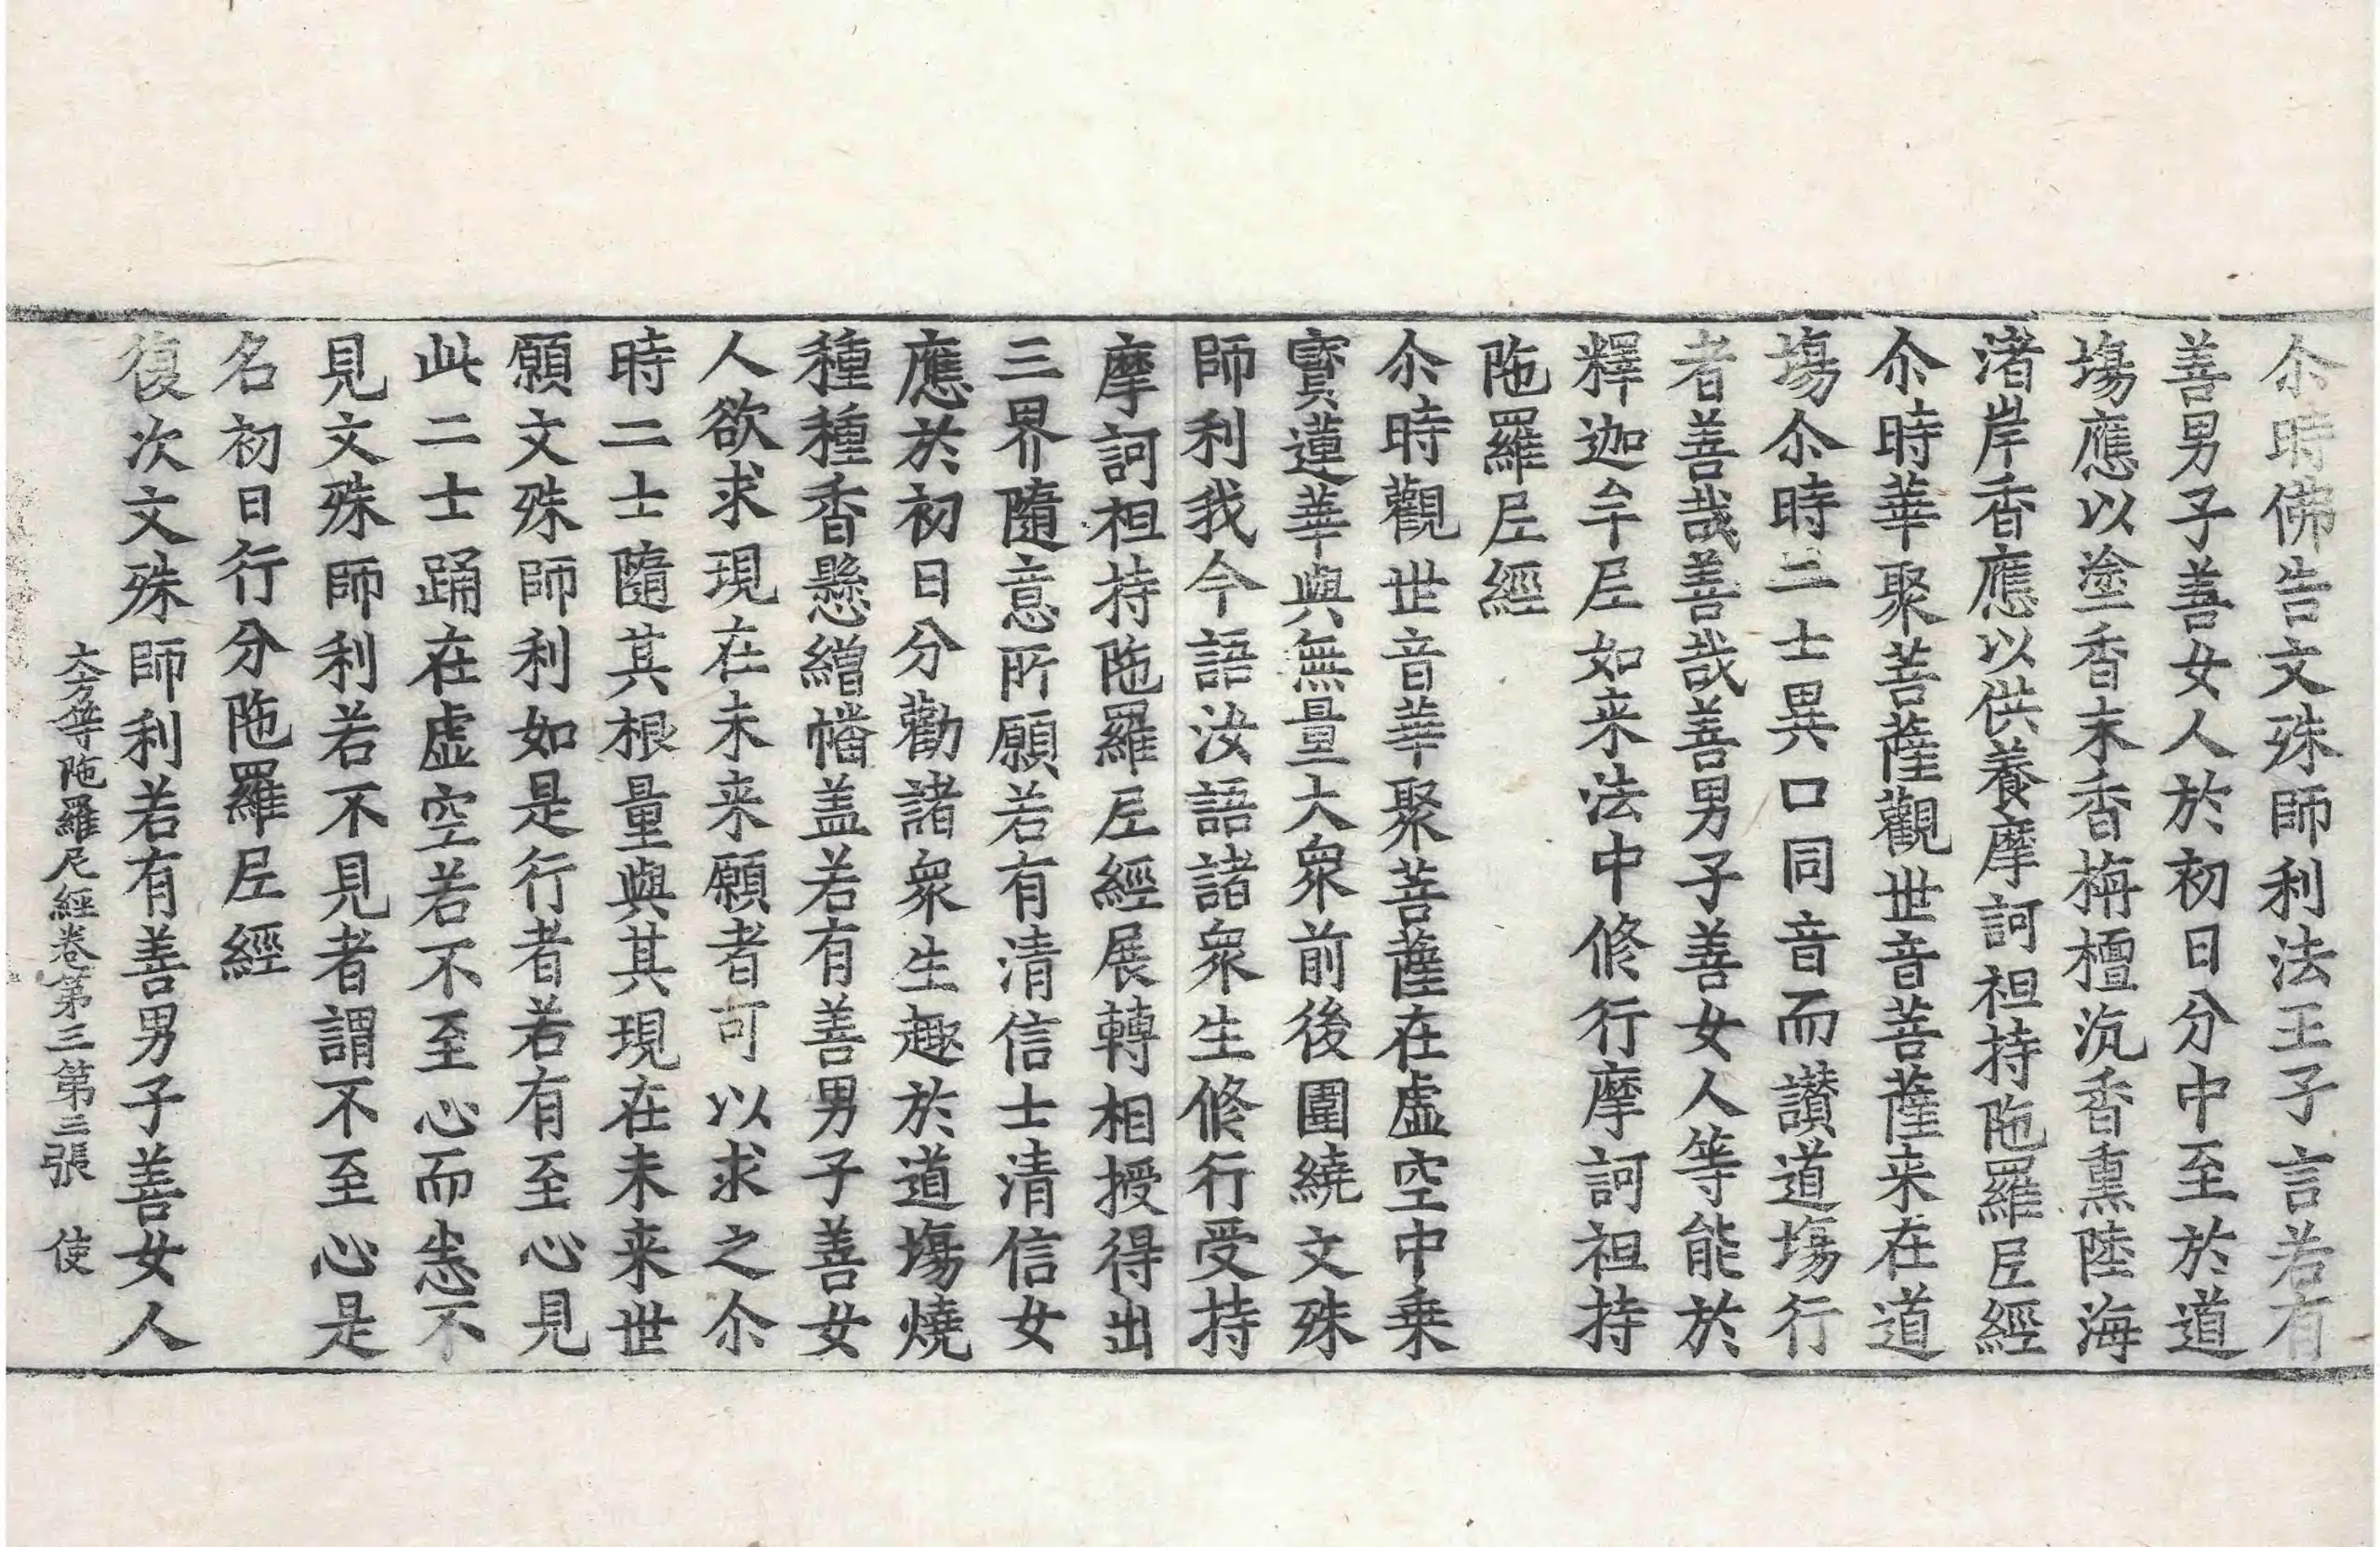 尒時佛告文殊師利法王子言若有
善男子善女人於初日分中至於道
塲應以塗香末香栴檀沉香熏陸海
渚岸香應以供養摩訶袒持陁羅𡰱經
尒時華聚菩薩觀世音菩薩来在道
塲尒時二士異口同音而讃道塲行
者善哉善哉善男子善女人等能於
釋迦牟𡰱如来法中修行摩訶袒持
陁羅𡰱經
尒時觀世音華聚菩薩在虛空中乗
寶蓮華與無量大衆前後圍繞文殊
師利我今語汝語諸衆生修行受持
摩訶袒持陁羅𡰱經展轉相授得出
三界隨意所願若有清信士清信女
應於初日分勸諸衆生趣於道塲燒
種種香懸繒幡盖若有善男子善女
人欲求現在未来願者可以求之尒
時二士隨其根量與其現在未来世
願文殊師利如是行者若有至心見
此二士踊在虛空若不至心而悉不
見文殊師利若不見者謂不至心是
名初日行分陁羅𡰱經
復次文殊師利若有善男子善女人
大方等陁羅尼經卷第三第三張 使